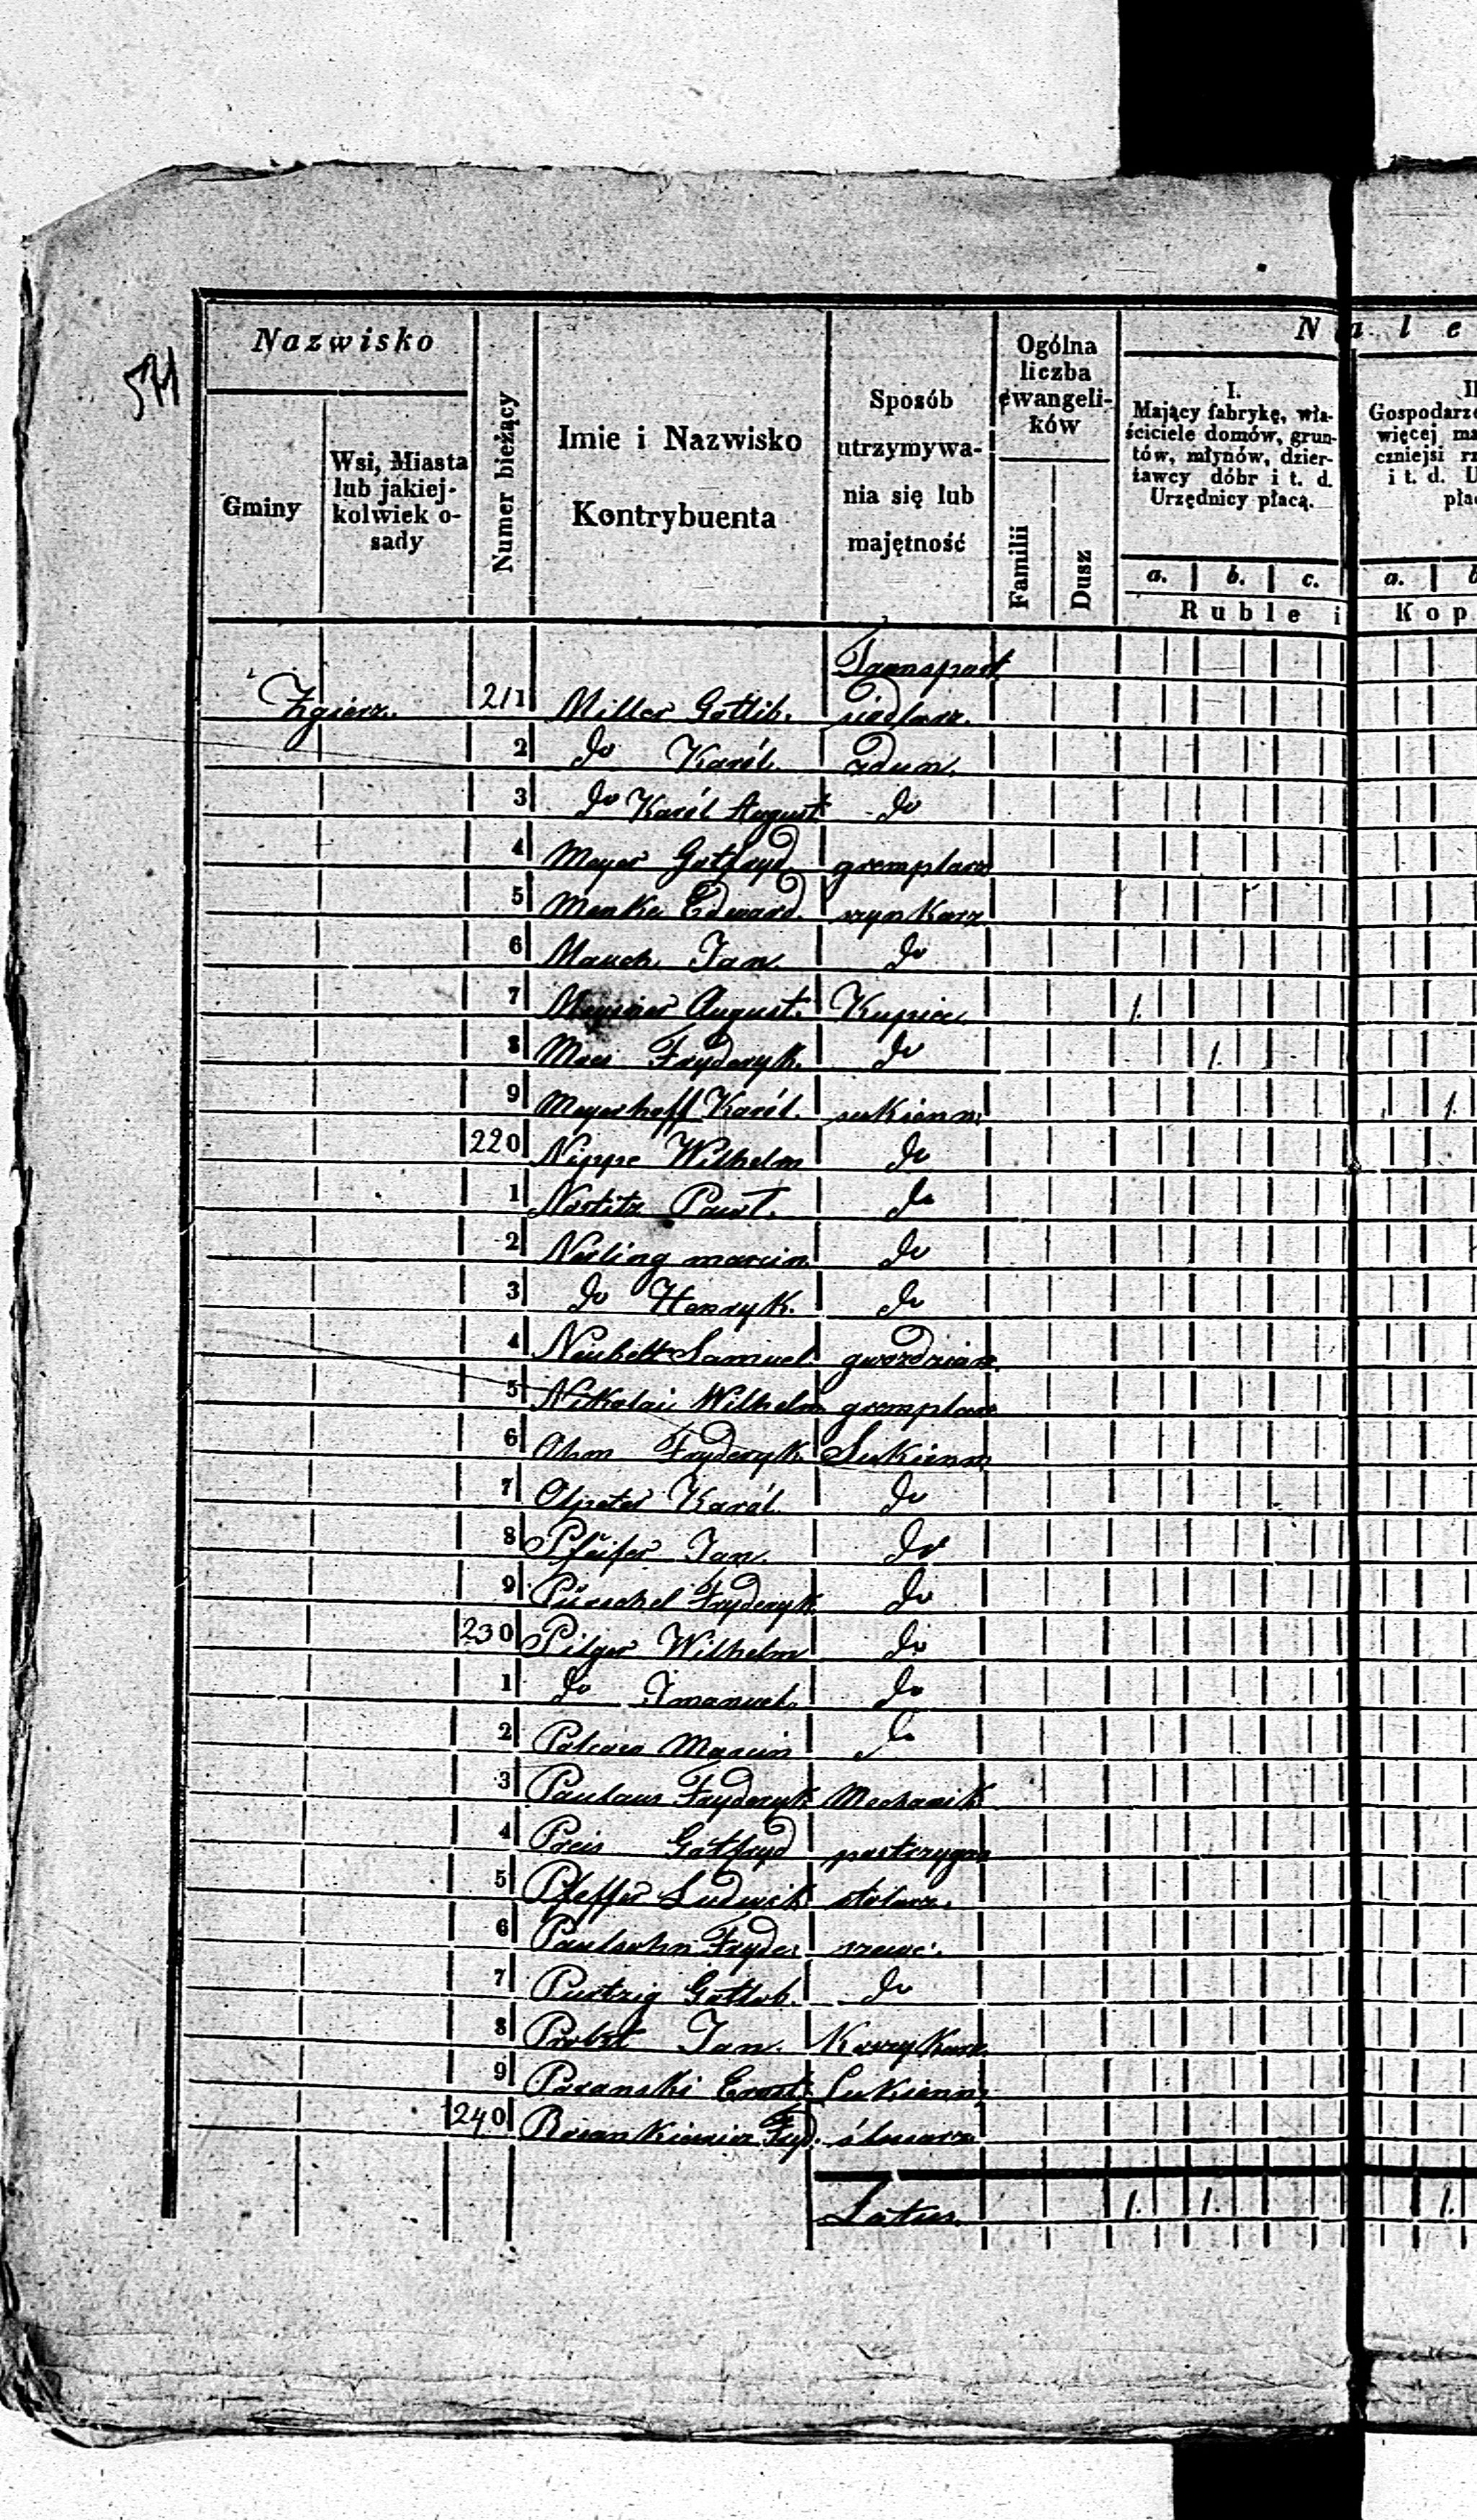 571
Nazwisko
Gminy
Wsi, Miasta
lub jakiej-
kolwiek o-
sady
Numer bieżący
Imie i Nazwisko
Kontrybuenta
Sposób
utrzymywa-
nia się lub
majętność
Ogólna
liczba
ewangeli-
ków
Familii
Dusz
N a l e
I.
Mający fabrykę, wła-
ściciele domów, grun-
tów, młynów, dzier-
żawcy dóbr i t. d.
Urzędnicy płacą.
a. b. c.
Ruble i
II
Gospodarze
więcej ma
czniejsi rz
i t. d. U
pła
a. b
Kop
Transport
Zgierz. 211 Miller Gotlib. siodlarz.
2 do Karól. zdun.
3 do Karól August do
4 Meyer Gotfryd gremplarz
5 Menke Edward. szynkarz
6 Mauch Jan. do
7 August. Kupiec. 1.
8 Mees Fryderyk. do 1.
9 Meyerhoff Karól. sukienn. 1.
220 Nippe Wilhelm do
1 Nostitz Paweł. do
2 Nerling marcin do
3 do Henryk. do
4 Samuel gwozdziarz.
5 Nikolai Wilhelm gremplarz
6 Ohm Fryderyk Sukienn.
7 Karól do
8 Pfeifer Jan. do
9 Püschel Fryderyk do
230 Pilger Wilhelm do
1 do Imanuel. do
2 Marcin do
3 Fryderyk Mechanik
4 Preis Gotfryd postrzygacz
5 Pfeffer Ludwik stolarz.
6 Paulsohn Fryder szewc.
7 Gottlob. do
8 Probst Jan. Koszykarz.
9 Ernst. Sukienn.
240 Fryd. ślusarz
Latus. 1. 1. 1.